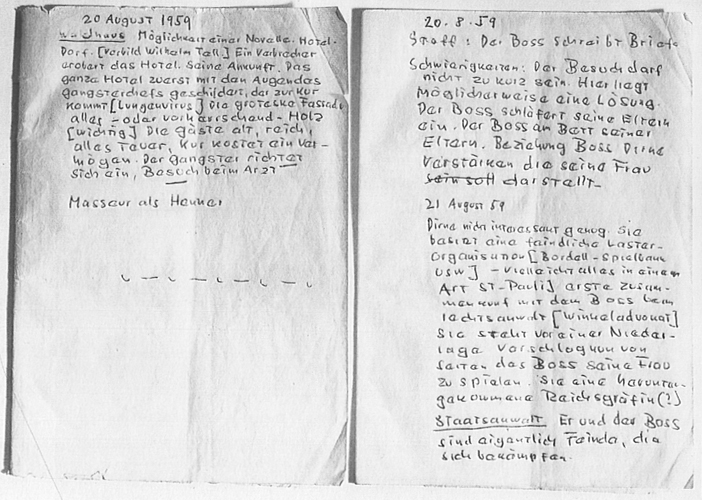 20 August 1959
Waldhaus Möglichkeit einer Novelle. Hotel-
Dorf. [Vorbild Wilhelm Tell.] Ein Verbrecher
erobert das Hotel. Seine Ankunft. Das
ganze Hotel zuerst mit den Augen des
gangsterchefs geschildert, der zur Kur
kommt [Lungenvirus] Die groteske Fassade
alles - oder vorherrschend - Holz
[widrig] Die Gäste alt, reich,
alles teuer, Kur kostet ein Ver-
mögen. Der gangster richtet
sich ein, Besuch beim Arzt
Masseur als Henker
20.8.59
Stoff: Der Boss schreibt Briefe
Schwierigkeiten: Der Besuch darf
nicht zu kurz sein. Hier liegt
Möglicherweise eine Lösung.
Der Boss schläfert seine Eltern
ein. Der Boss am Bett seiner
Eltern. Beziehung Boss Dirne
verstärken die seine Frau
sein soll darstellt.
21 August 59
Dirne nicht interessant genug. Sie
besitzt eine feindliche Laster-
organisation [Bordell-Spielbank
usw] - vielleicht alles in einem
Art St-Pauli] erste Zusam-
menkunft mit dem Boss beim
rechtsanwalt [Winkeladvokat]
Sie steht vor einer Nieder-
lage Vorschlag nun von
seiten des Boss seine Frau
zu spielen. Sie eine herunter-
gekommene Reichsgräfin (?)
Staatsanwalt Er und der Boss
sind eigentlich Feinde, die
sich bekämpfen.